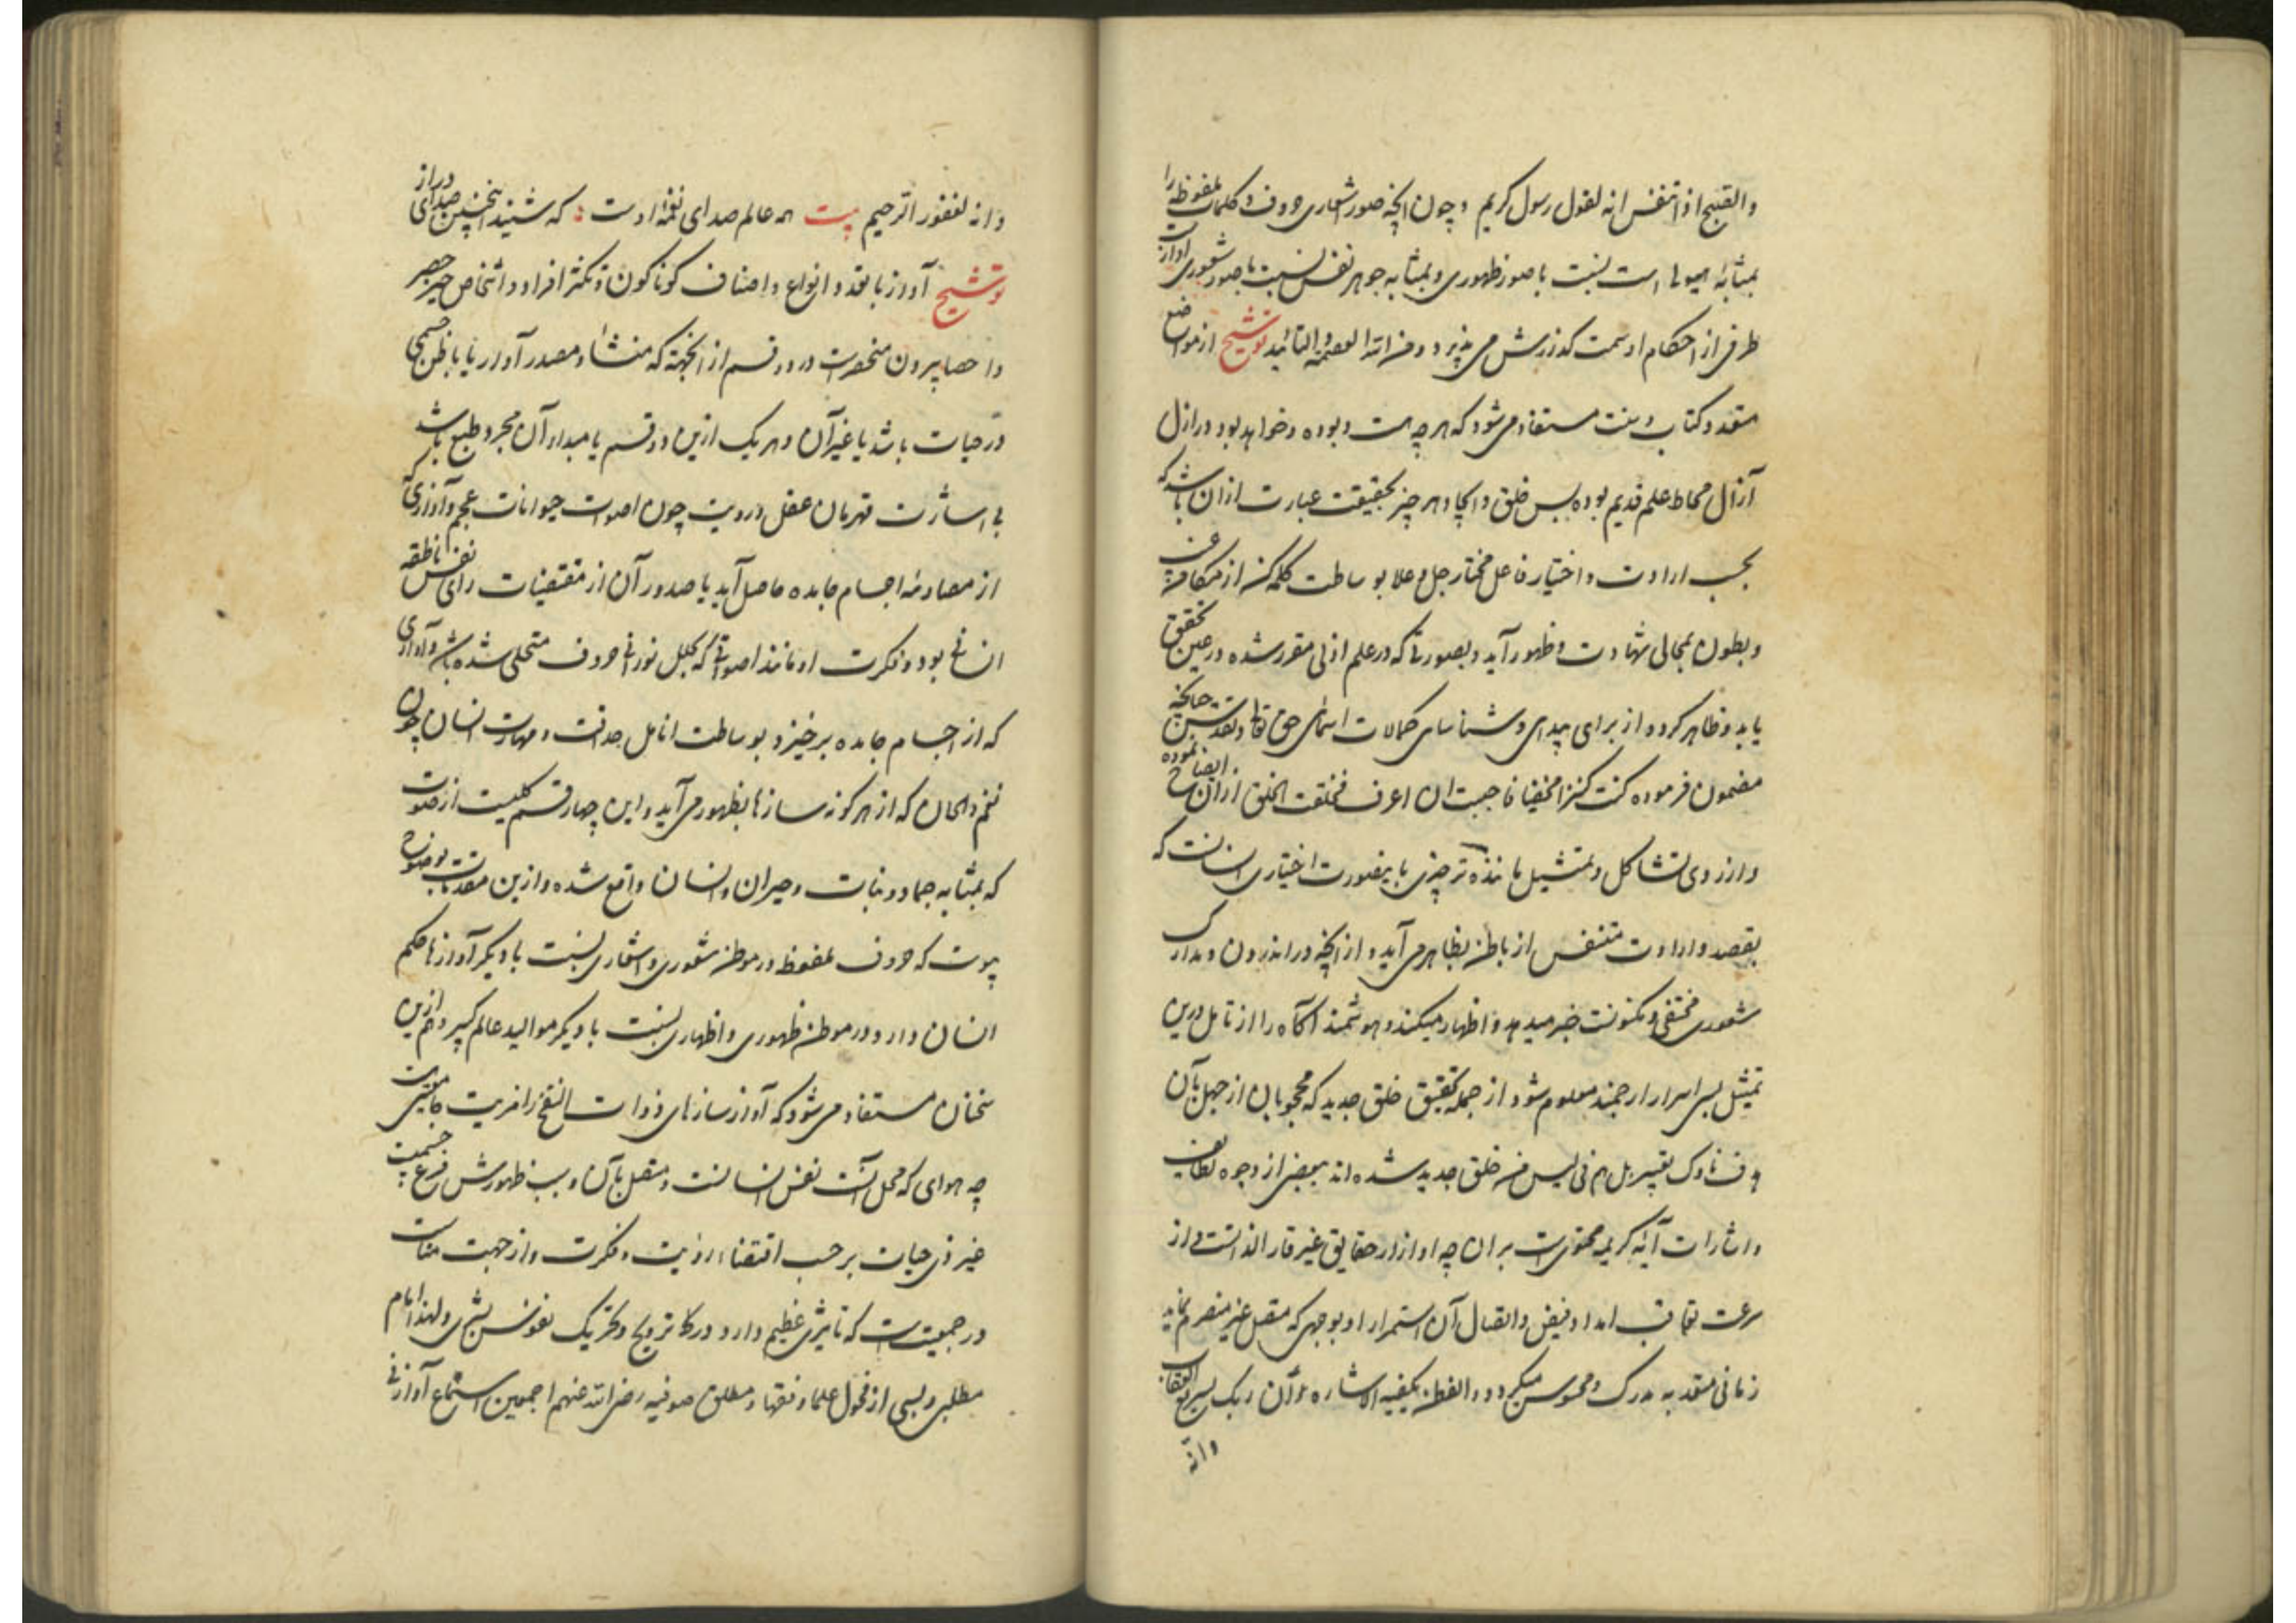 والصبح اذا تنفس انه لقول رسول کریم و چون آنچه صور اشعاری حروف و کلمات ملفوظه را
بمثابه هیولی است نسبت با صور ظهوری و بمثابه جوهر نفس نسبت با صور شعوری آواز است
طرفی از احکام او سمت گذارش می پذیرد و من الله العصمة و التائید توشیح از مواضع
متعدد کتاب و سنت مستفاد میشود که هر چه هست و بوده و خواهد بود در ازل
آزال محاط علم قدیم بوده پس خلق و ایجاد هر چیز بحقیقت عبارت از آن باشد که
بحسب ارادت و اختیار فاعل مختار جل و علا بوساطت کلمه کن از مکامن غیب
و بطون بمجالی شهادت و ظهور آید و بصورتی که در علم ازلی مقرر شده در عین تحقق
یابد و ظاهر گردد از برای پیدای و شناسای کمالات اسمای حق تعالی و تقدس چنانچه
مضمون فرموده کنت کنزا مخفیا فاحببت ان اعرف فخلقت الخلق از آن افصاح نموده
و از روی تشاکل و تمثیل ماننده تر چیزی باینصورت اختیاری انسانست که
بقصد و ارادت متنفس از باطن بظاهر می آید و از آنچه در اندرون و مدارک
شعوری مختفی و مکنونست خبر میدهد و اظهار میکند و هوشمند آگاه را از تامل درین
تمثیل بسی اسرار ارجمند معلوم شود از جمله تحقیق خلق جدید که محجوبان از جهل بآن
هدف ناوک تقییر بل هم فی لبس من خلق جدید شده اند ببعضی از وجوه لطایف
و اشارات آیه کریمه محتویست بر آن چه آواز از حقایق غیر قار الذاتست از
سرعت تعاقب امداد فیض و اتصال آن استمرار او بوجهی که متصل غیر منصرم نماید
زمانی معتد به مدرک و محسوس میگردد و الفطن یکفیه الاشاره و ان ربک لسریع العقاب
وانه
وانه لغفور الرحیم بیت همه عالم صدای نغمه اوست که شنید اینچنین صدای دراز
توشیح آواز با تعدد انواع و اصناف گوناگون و تکثر افراد و اشخاص از حیز حصر
و احصا بیرون منحصرست در دو قسم از آنجهة که منشأ و مصدر آواز یا باطن جسمی
ذو حیات باشد یا غیر آن و هر یک ازین دو قسم یا مبداء آن مجرد طبع باشد
بی اشارت قهرمان عقل و رویت چون اصوات حیوانات عجم و آوازی که
از مصادمه اجسام جامده حاصل آید یا صدور آن از مقتضیات رای نفس ناطقه
انسانی بود و فکرت او مانند اصواتی که بحلل نورانی حروف متحلی شده باشد و آوازی
که از اجسام جامده برخیزد بوساطت انامل حذاقت و مهارت انسان چون
نغم و الحان که از هر گونه سازها بظهور می آید و این چهار قسم کلیست از صوت
که بمثابه جماد و نبات و حیوان و انسان واقع شده و ازین مقدمات بوضوح
پیوست که حروف ملفوظ در موطن شعوری و اشعاری نسبت با دیگر آوازها حکم
انسان دارد و در موطن ظهوری و اظهاری نسبت با دیگر موالید عالم کبیر و هم ازین
سخنان مستفاد می شود که آواز سازهای ذوات النفخ را مزیت جامعیتی هست
چه هوای که محل آنست نفس انسانست و متصل بآن و سبب ظهورش قرع جسمیت
غیر ذی حیات بر حسب اقتضاء رویت و فکرت و از جهت مناسبت
در جمعیت است که تاثیری عظیم دارد در کار ترویح و تحریک نفوس بشری و لهذا امام
مطلبی و بسی از فحول علما و فقها و مطلق صوفیه رضی الله عنهم اجمعین استماع آواز نی